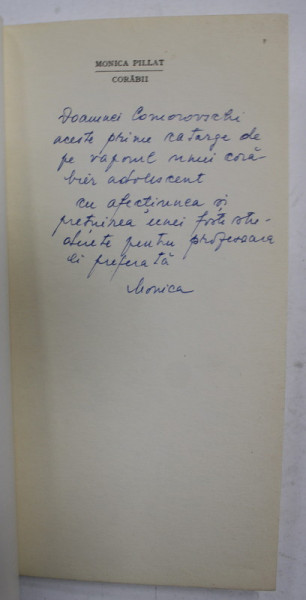 MONICA PILLAT
CORĂBII
Doamnei Comorovschi
aceste prime catarge de
pe vaporul unui coră-
bier adolescent
cu afecțiunea și
prețuirea unei foste stu-
dente pentru profesoara
ei preferată
Monica